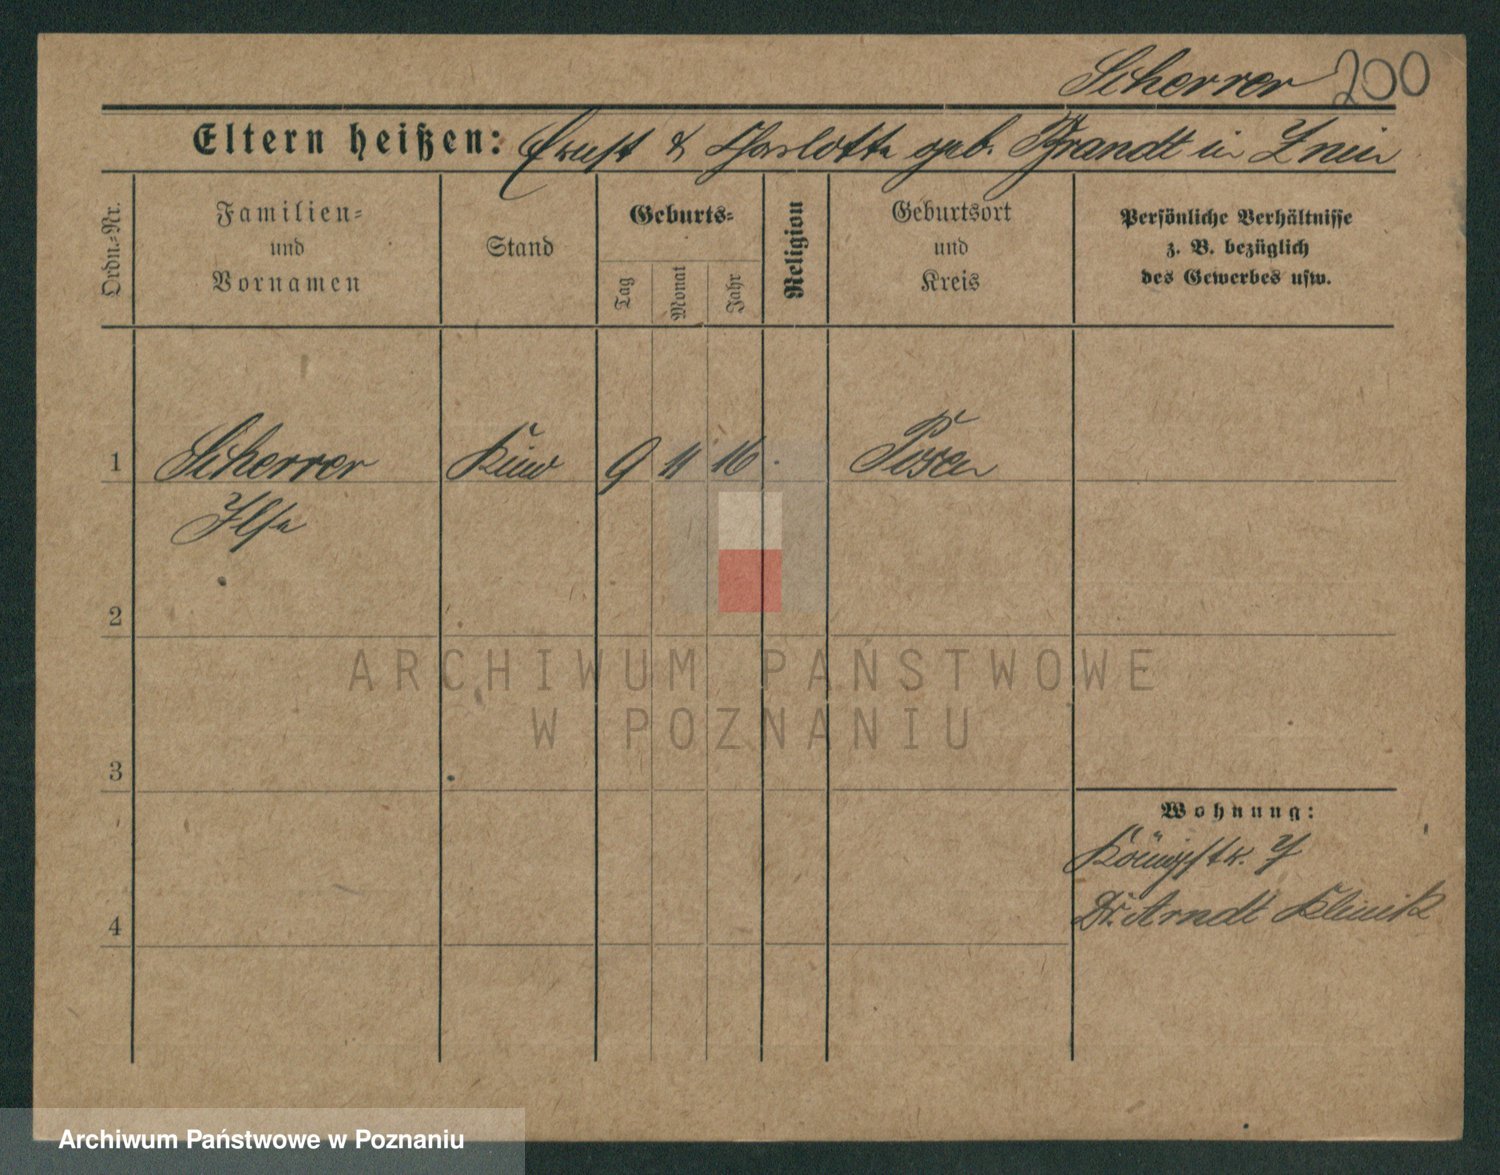 Scherrer 200
Eltern heißen: Ernst & Charlotte geb. Brandt in Znin
Ordn.-Nr.
Familien-
und
Vornamen
Stand
Geburts-
Tag
Monat
Jahr
Religion
Geburtsort
und
Kreis
Persönliche Verhältnisse
z. B. bezüglich
des Gewerbes usw.
1 Scherrer Kind 9 11 16 Posen
Ilse
2
ARCHIWUM PAŃSTWOWE
W POZNANIU
3
Wohnung:
Königstr. 7
Dr. Arndt Klinik
4
Archiwum Państwowe w Poznaniu